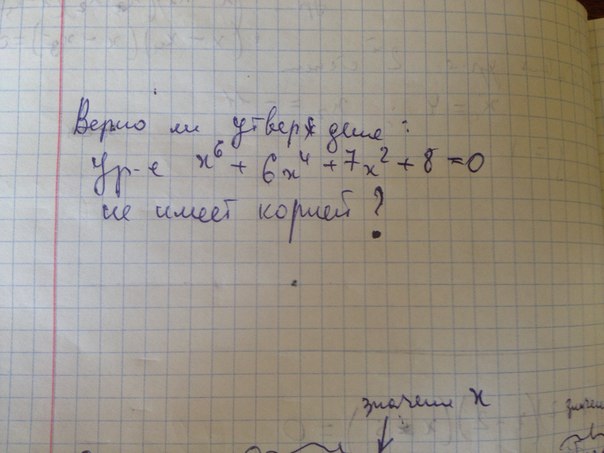 Верно ли утверждение:
Ур-е x⁶ + 6x⁴ + 7x² + 8 = 0
не имеет корней?
значения x